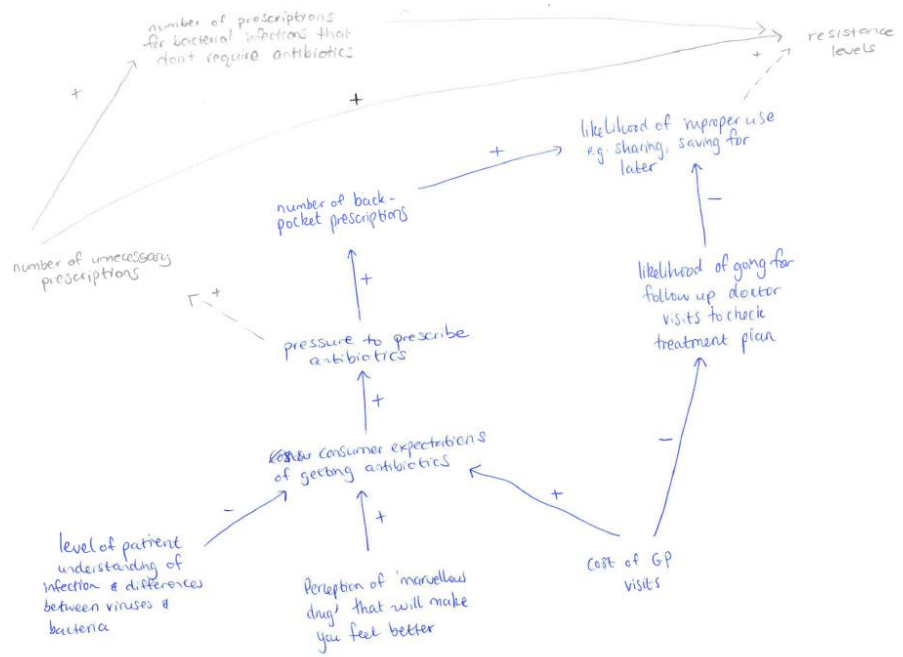 number of prescriptions
for bacterial infections that
don't require antibiotics
resistance
levels
+
+
+
likelihood of improper use
e.g. sharing, saving for
later
+
number of back-
pocket prescriptions
−
number of unnecessary
prescriptions
likelihood of gong for
follow up doctor
visits to check
treatment plan
+
+
pressure to prescribe
antibiotics
+
−
consumer expectations
of getting antibiotics
+
−
+
level of patient
understanding of
infection & differences
between viruses &
bacteria
Perception of 'marvellous
drug' that will make
you feel better
cost of GP
visits